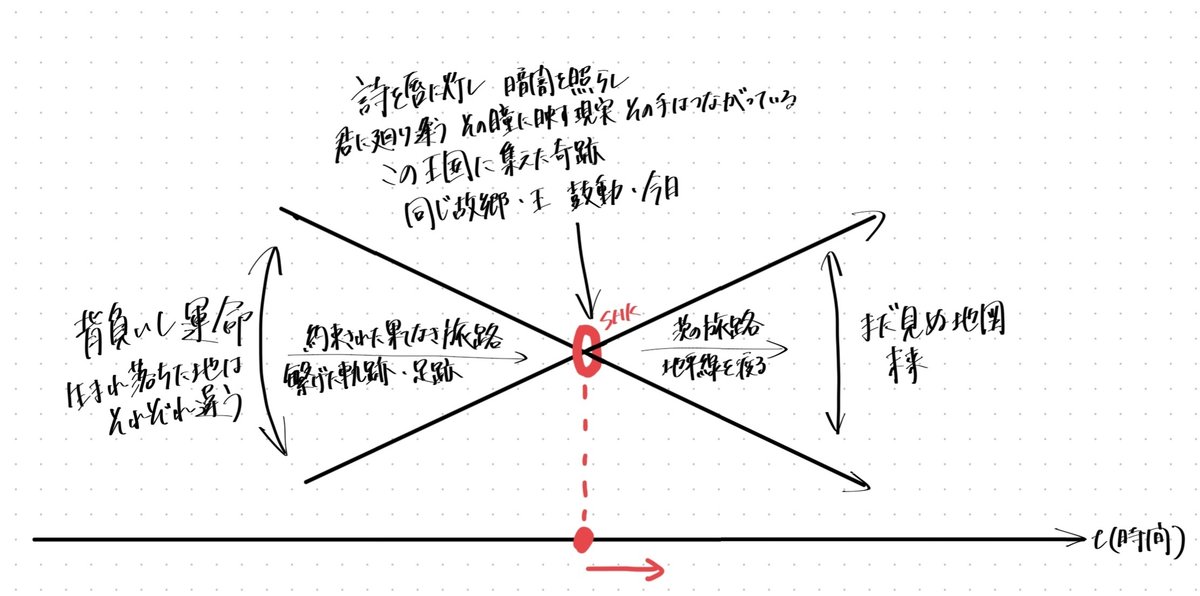 詩を唇に灯し 暗闇を照らし
君に廻り逢う その瞳に映す現実 その手はつながっている
この王国に集えた奇跡
同じ故郷・王 鼓動・今日
背負いし運命
生まれ落ちた地は
それぞれ違う
約束された果てなき旅路
繋げた軌跡・足跡
SHK
旅路
地平線を
まだ見ぬ地図
未来
t(時間)